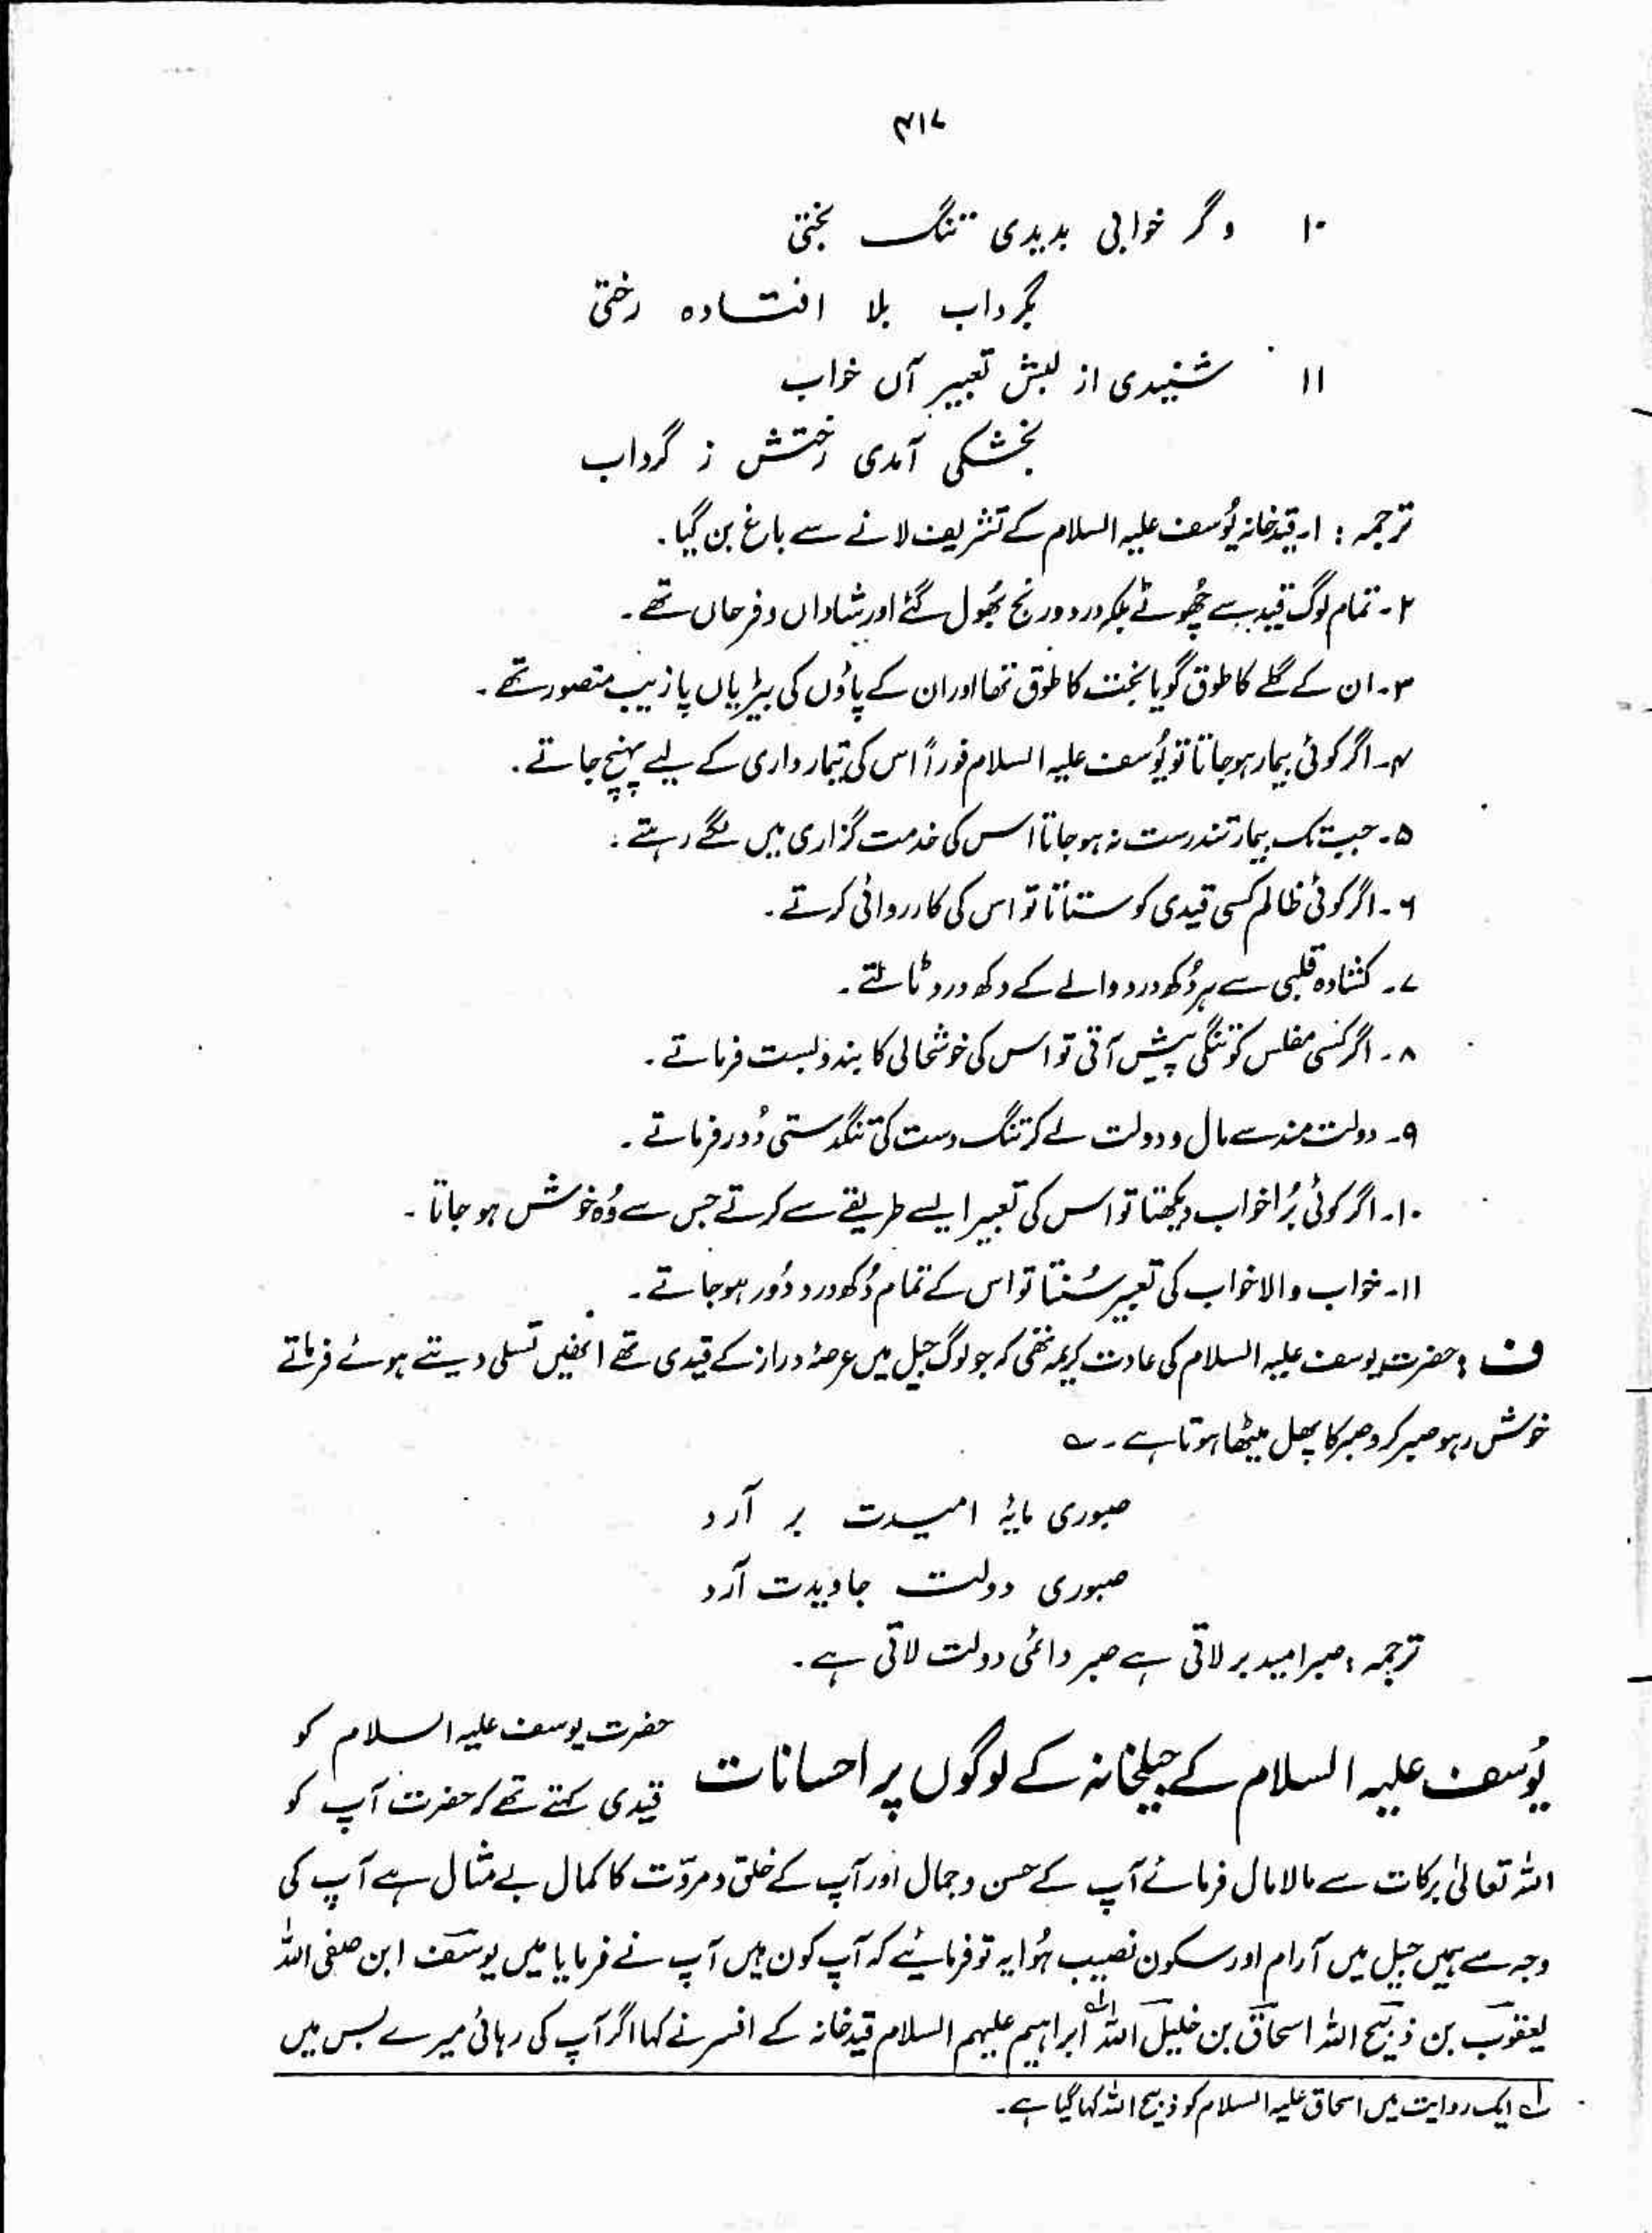 ۴۱۷
۱۰ وگر خوابی بدیدی تنگ بختی
بگرداب بلا افتادہ رختی
۱۱ شنیدی از لبش تعبیر آں خواب
بخشکی آمدی رختش ز گرداب
ترجمہ : ۱۔ قیدخانہ یُوسف علیہ السلام کے تشریف لانے سے باغ بن گیا۔
۲۔ تمام لوگ قید سے چُھوٹے بلکہ درد و رنج بھُول گئے اور شاداں و فرحاں تھے۔
۳۔ ان کے گلے کا طوق گویا بخت کا طوق تھا اور ان کے پاؤں کی بیڑیاں پازیب متصور تھے۔
۴۔ اگر کوئی بیمار ہوجاتا تو یُوسف علیہ السلام فوراً اس کی تیمارداری کے لیے پہنچ جاتے۔
۵۔ جب تک بیمار تندرست نہ ہوجاتا اس کی خدمت گزاری میں لگے رہتے۔
۶۔ اگر کوئی ظالم کسی قیدی کو ستاتا تو اس کی کارروائی کرتے۔
۷۔ کشادہ قلبی سے ہر دُکھ درد والے کے دکھ درد ٹالتے۔
۸۔ اگر کسی مفلس کو تنگی پیش آتی تو اس کی خوشحالی کا بندوبست فرماتے۔
۹۔ دولت مند سے مال و دولت لے کر تنگ دست کی تنگدستی دُور فرماتے۔
۱۰۔ اگر کوئی بُرا خواب دیکھتا تو اس کی تعبیر ایسے طریقے سے کرتے جس سے وُہ خوش ہو جاتا۔
۱۱۔ خواب والا خواب کی تعبیر سُنتا تو اس کے تمام دُکھ درد دُور ہوجاتے۔
ف : حضرت یوسف علیہ السلام کی عادت کریمہ تھی کہ جو لوگ جیل میں عرصۂ دراز کے قیدی تھے انھیں تسلی دیتے ہوئے فرماتے
خوش رہو صبر کرو صبر کا پھل میٹھا ہوتا ہے۔ ؎
صبوری مایۂ امیدت بر آرد
صبوری دولت جاویدت آرد
ترجمہ : صبر امید بر لاتی ہے صبر دائمی دولت لاتی ہے۔
یُوسف علیہ السلام کے جیلخانہ کے لوگوں پر احسانات
حضرت یوسف علیہ السلام کو
قیدی کہتے تھے کہ حضرت آپ کو
اللہ تعالیٰ برکات سے مالا مال فرمائے آپ کے حسن و جمال اور آپ کے خلق و مروّت کا کمال بے مثال ہے آپ کی
وجہ سے ہمیں جیل میں آرام اور سکون نصیب ہُوا یہ تو فرمائیے کہ آپ کون ہیں آپ نے فرمایا میں یوسف ابن صفی اللہ
یعقوب بن ذبیح اللہ اسحاق بن خلیل اللہ ابراہیم علیہم السلام قیدخانہ کے افسر نے کہا اگر آپ کی رہائی میرے بس میں
لہ ایک روایت میں اسحاق علیہ السلام کو ذبیح اللہ کہا گیا ہے۔